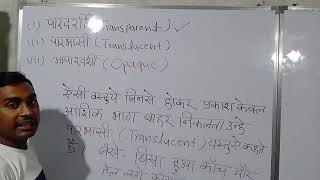 (i) पारदर्शी (Transparent) ✓
(ii) पारभासी (Translucent)
(iii) अपारदर्शी (Opaque)
ऐसी वस्तुये जिनसे होकर प्रकाश केवल
आंशिक भाग बाहर निकलता उन्हे
पारभासी (Translucent) वस्तु कहते
है
जैसे- घिसा हुआ काँच और
तेल लगा